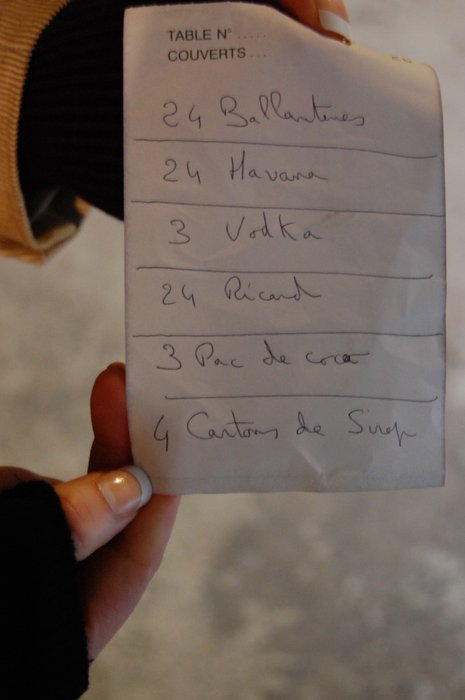 TABLE N° .....
COUVERTS ...
24 Ballantines
24 Havana
3 Vodka
24 Ricard
3 Pac de coca
4 Cartons de Sirop